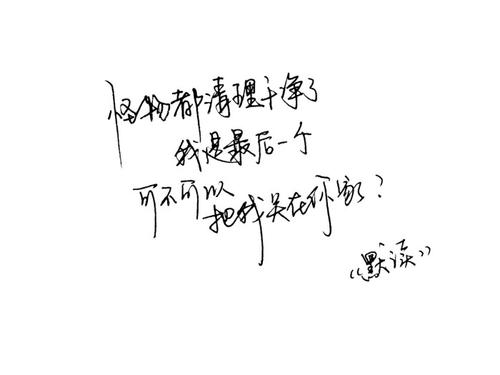 怪物都清理干净了
我是最后一个
可不可以
把我关在你家?
《默读》